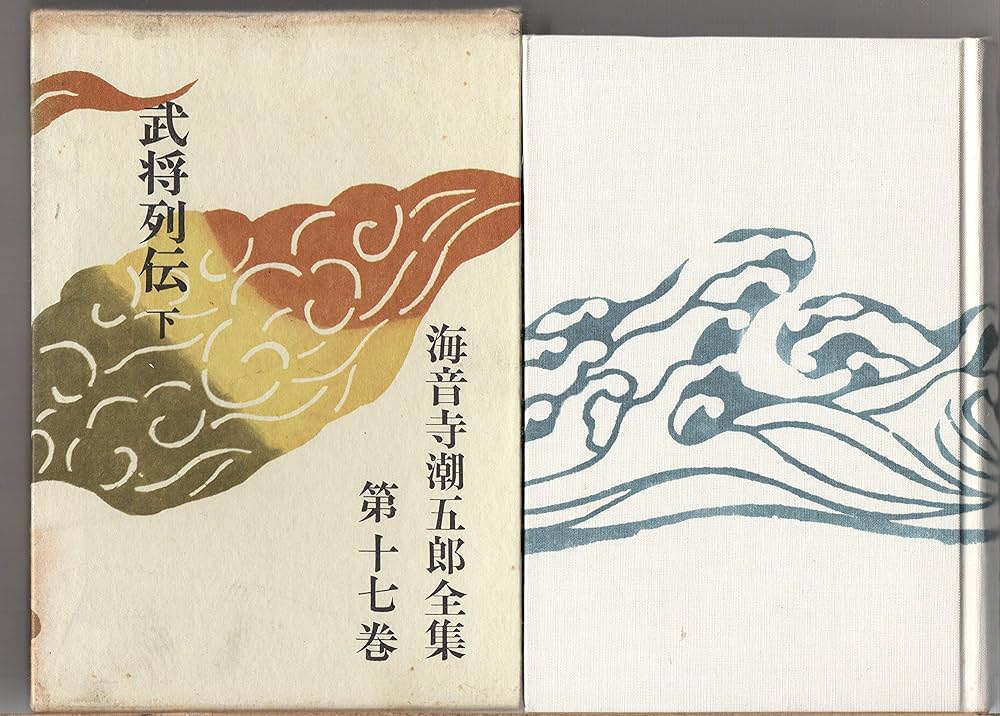 海音寺潮五郎全集
第十七巻
武将列伝 下